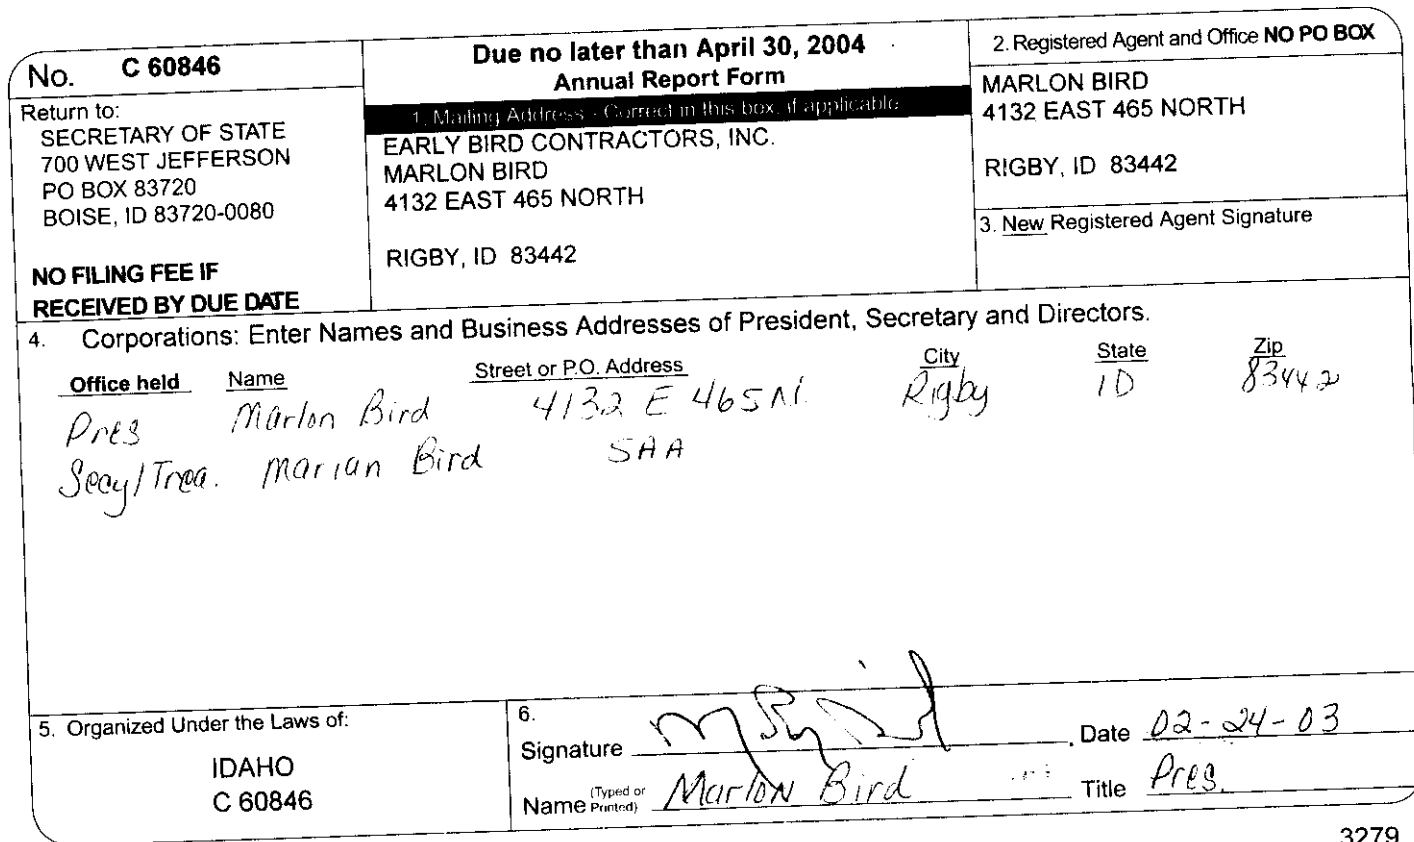 No. C 60846
Return to:
SECRETARY OF STATE
700 WEST JEFFERSON
PO BOX 83720
BOISE, ID 83720-0080
NO FILING FEE IF
RECEIVED BY DUE DATE
Due no later than April 30, 2004
Annual Report Form
1. Mailing Address - Correct in this box, if applicable
EARLY BIRD CONTRACTORS, INC.
MARLON BIRD
4132 EAST 465 NORTH
RIGBY, ID 83442
2. Registered Agent and Office NO PO BOX
MARLON BIRD
4132 EAST 465 NORTH
RIGBY, ID 83442
3. New Registered Agent Signature
4. Corporations: Enter Names and Business Addresses of President, Secretary and Directors.
Office held Name Street or P.O. Address City State Zip
Pres Marlon Bird 4132 E 465 N. Rigby ID 83442
Secy/Trea. Marian Bird SAA
5. Organized Under the Laws of:
IDAHO
C 60846
6.
Signature Date 02-24-03
Name (Typed or Printed) Marlon Bird Title Pres.
3279